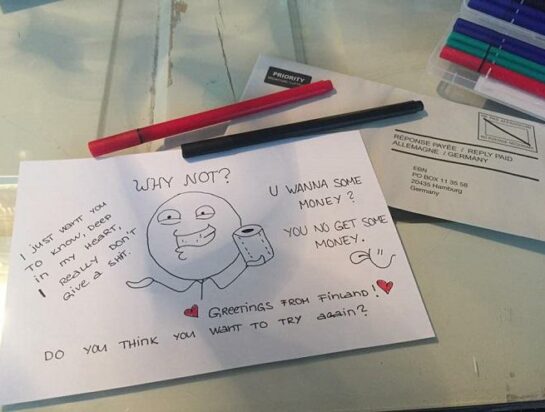 PRIORITY
RÉPONSE PAYÉE / REPLY PAID
ALLEMAGNE / GERMANY
EBN
PO BOX 11 35 58
20435 Hamburg
Germany
WHY NOT?
U WANNA SOME
MONEY?
YOU NO GET SOME
MONEY.
I JUST WANT YOU
TO KNOW, DEEP
IN MY HEART,
I REALLY DON'T
GIVE A SHIT.
GREETINGS FROM FINLAND!
DO YOU THINK YOU WANT TO TRY AGAIN?